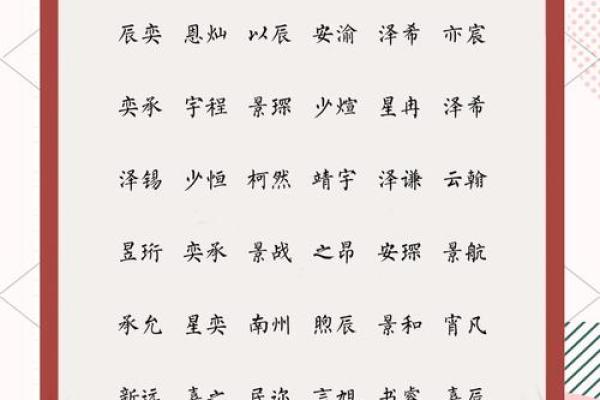 辰奕 恩灿 以辰 安渝 泽希 亦宸
奕承 宇程 景琛 少煊 星冉 泽希
泽锡 少恒 柯然 靖宇 泽谦 云翰
昱珩 奕承 景战 之昂 安琛 景航
承允 星奕 南州 煦辰 景和 宵凡
新远 言旭 书睿 嘉辰